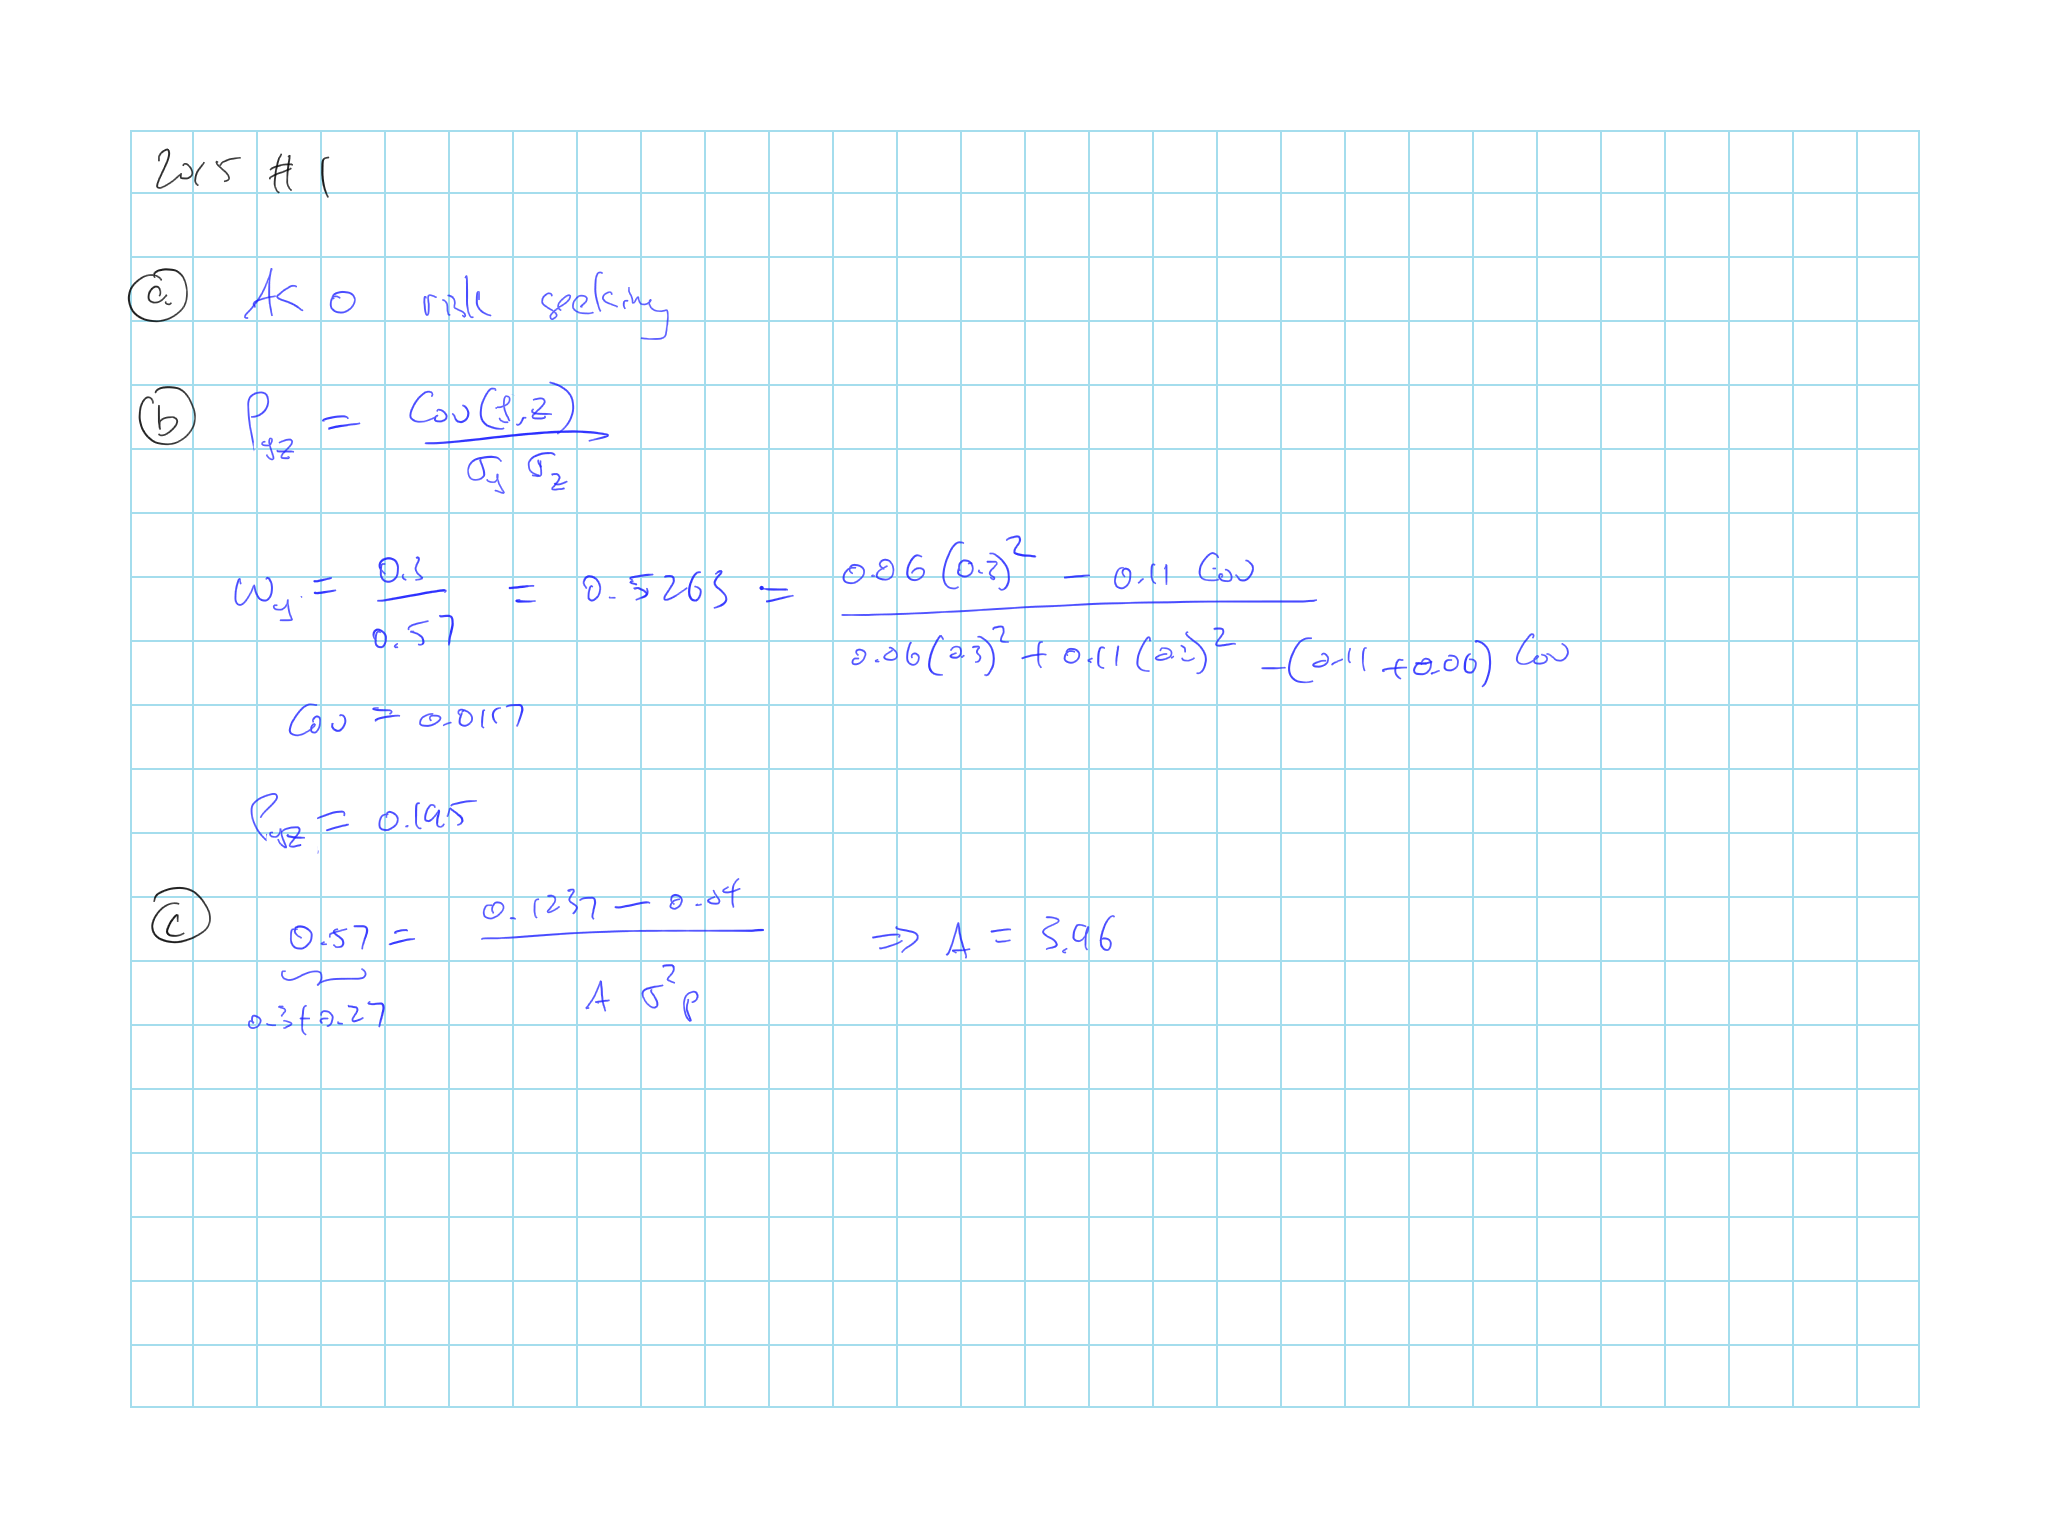 2015 #1
(a) A<0 risk seeking
(b) ρ_yz = Cov(y,z) / σ_y σ_z
w_y = 0.3 / 0.57 = 0.5263 = (0.06(0.3)² - 0.11 Cov) / (0.06(0.3)² + 0.11(0.2)² - (0.11+0.06) Cov)
Cov = 0.0117
ρ_yz = 0.195
(c) 0.57 = (0.1237 - 0.04) / (A σ²_p) ⇒ A = 3.96
0.3+0.27